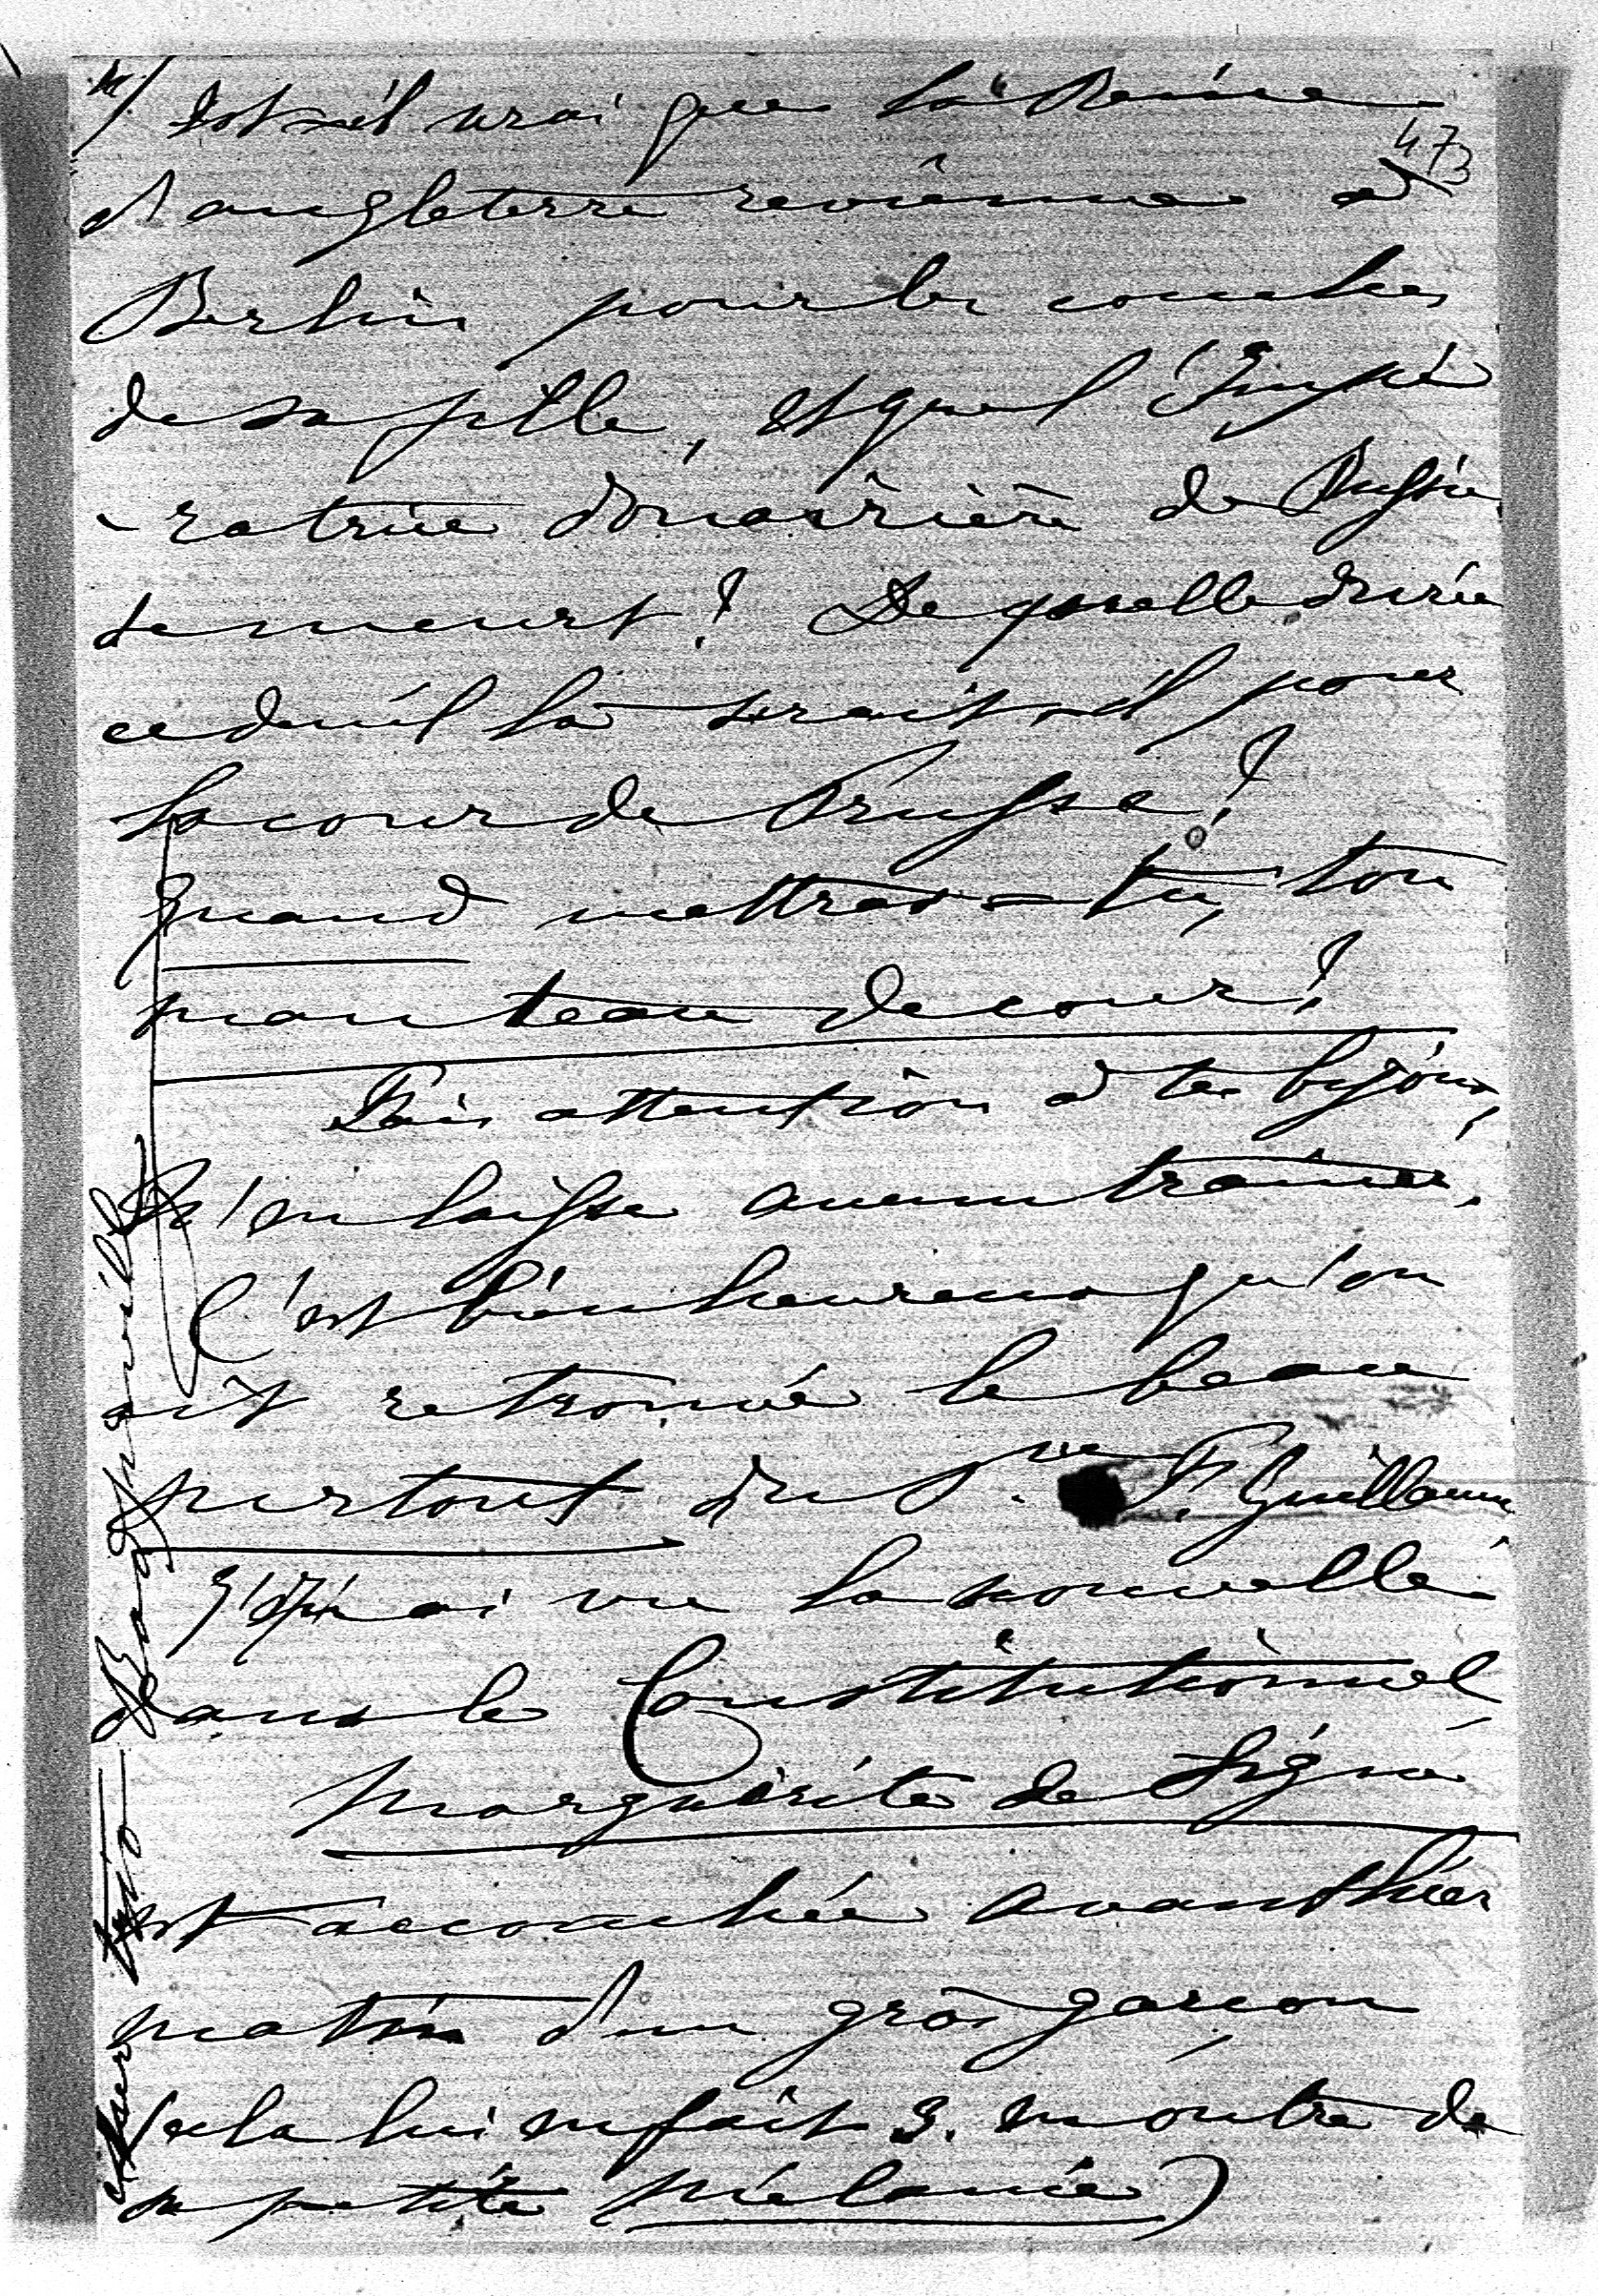 Est-il vrai que la Reine
473
d'angleterre revienne à
Berlin pour les couches
de sa fille, et que l'Impé
-ratrice douairière de Russie
se meurt? De quelle durée
ce deuil là serait-il pour
la cour de Prusse?
Quand mettras-tu, ton
manteau de cour?
Fais attention à tes bijoux,
n'en laisse aucun trainer.
C'est bien heureux qu'on
ait retrouvé le beau
surtout du Pce F. Guillaume.
J'en ai vu la nouvelle
dans le Constitutionnel
Marguérite de
est accouchée avant hier
matin d'un gros garçon
cela lui en fait 3. moutre de
sa petite Mélanie)